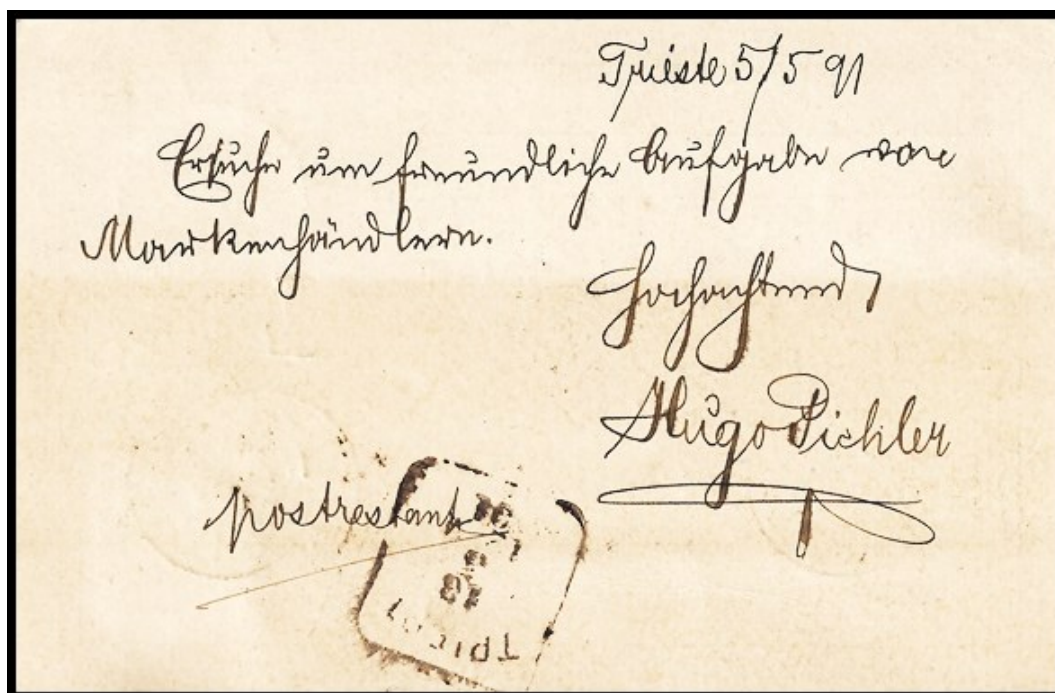 Trieste 5/5 91
Ersuche um freundliche Aufgabe von
Markenhändlern.
Hochachtend
Hugo Pichler
postrestante